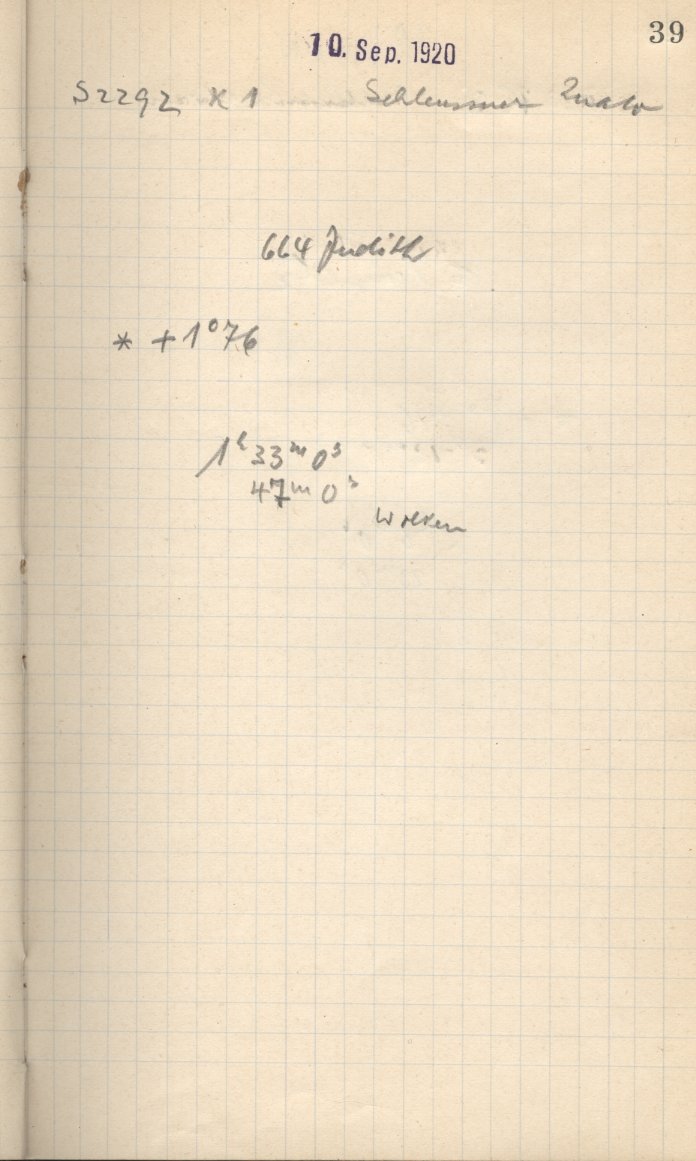 39
10. Sep. 1920
S2292 K 1 Schleussner
664 Judith
* +1°76
1ʰ 33ᵐ 0ˢ
47ᵐ 0ˢ
Wolken